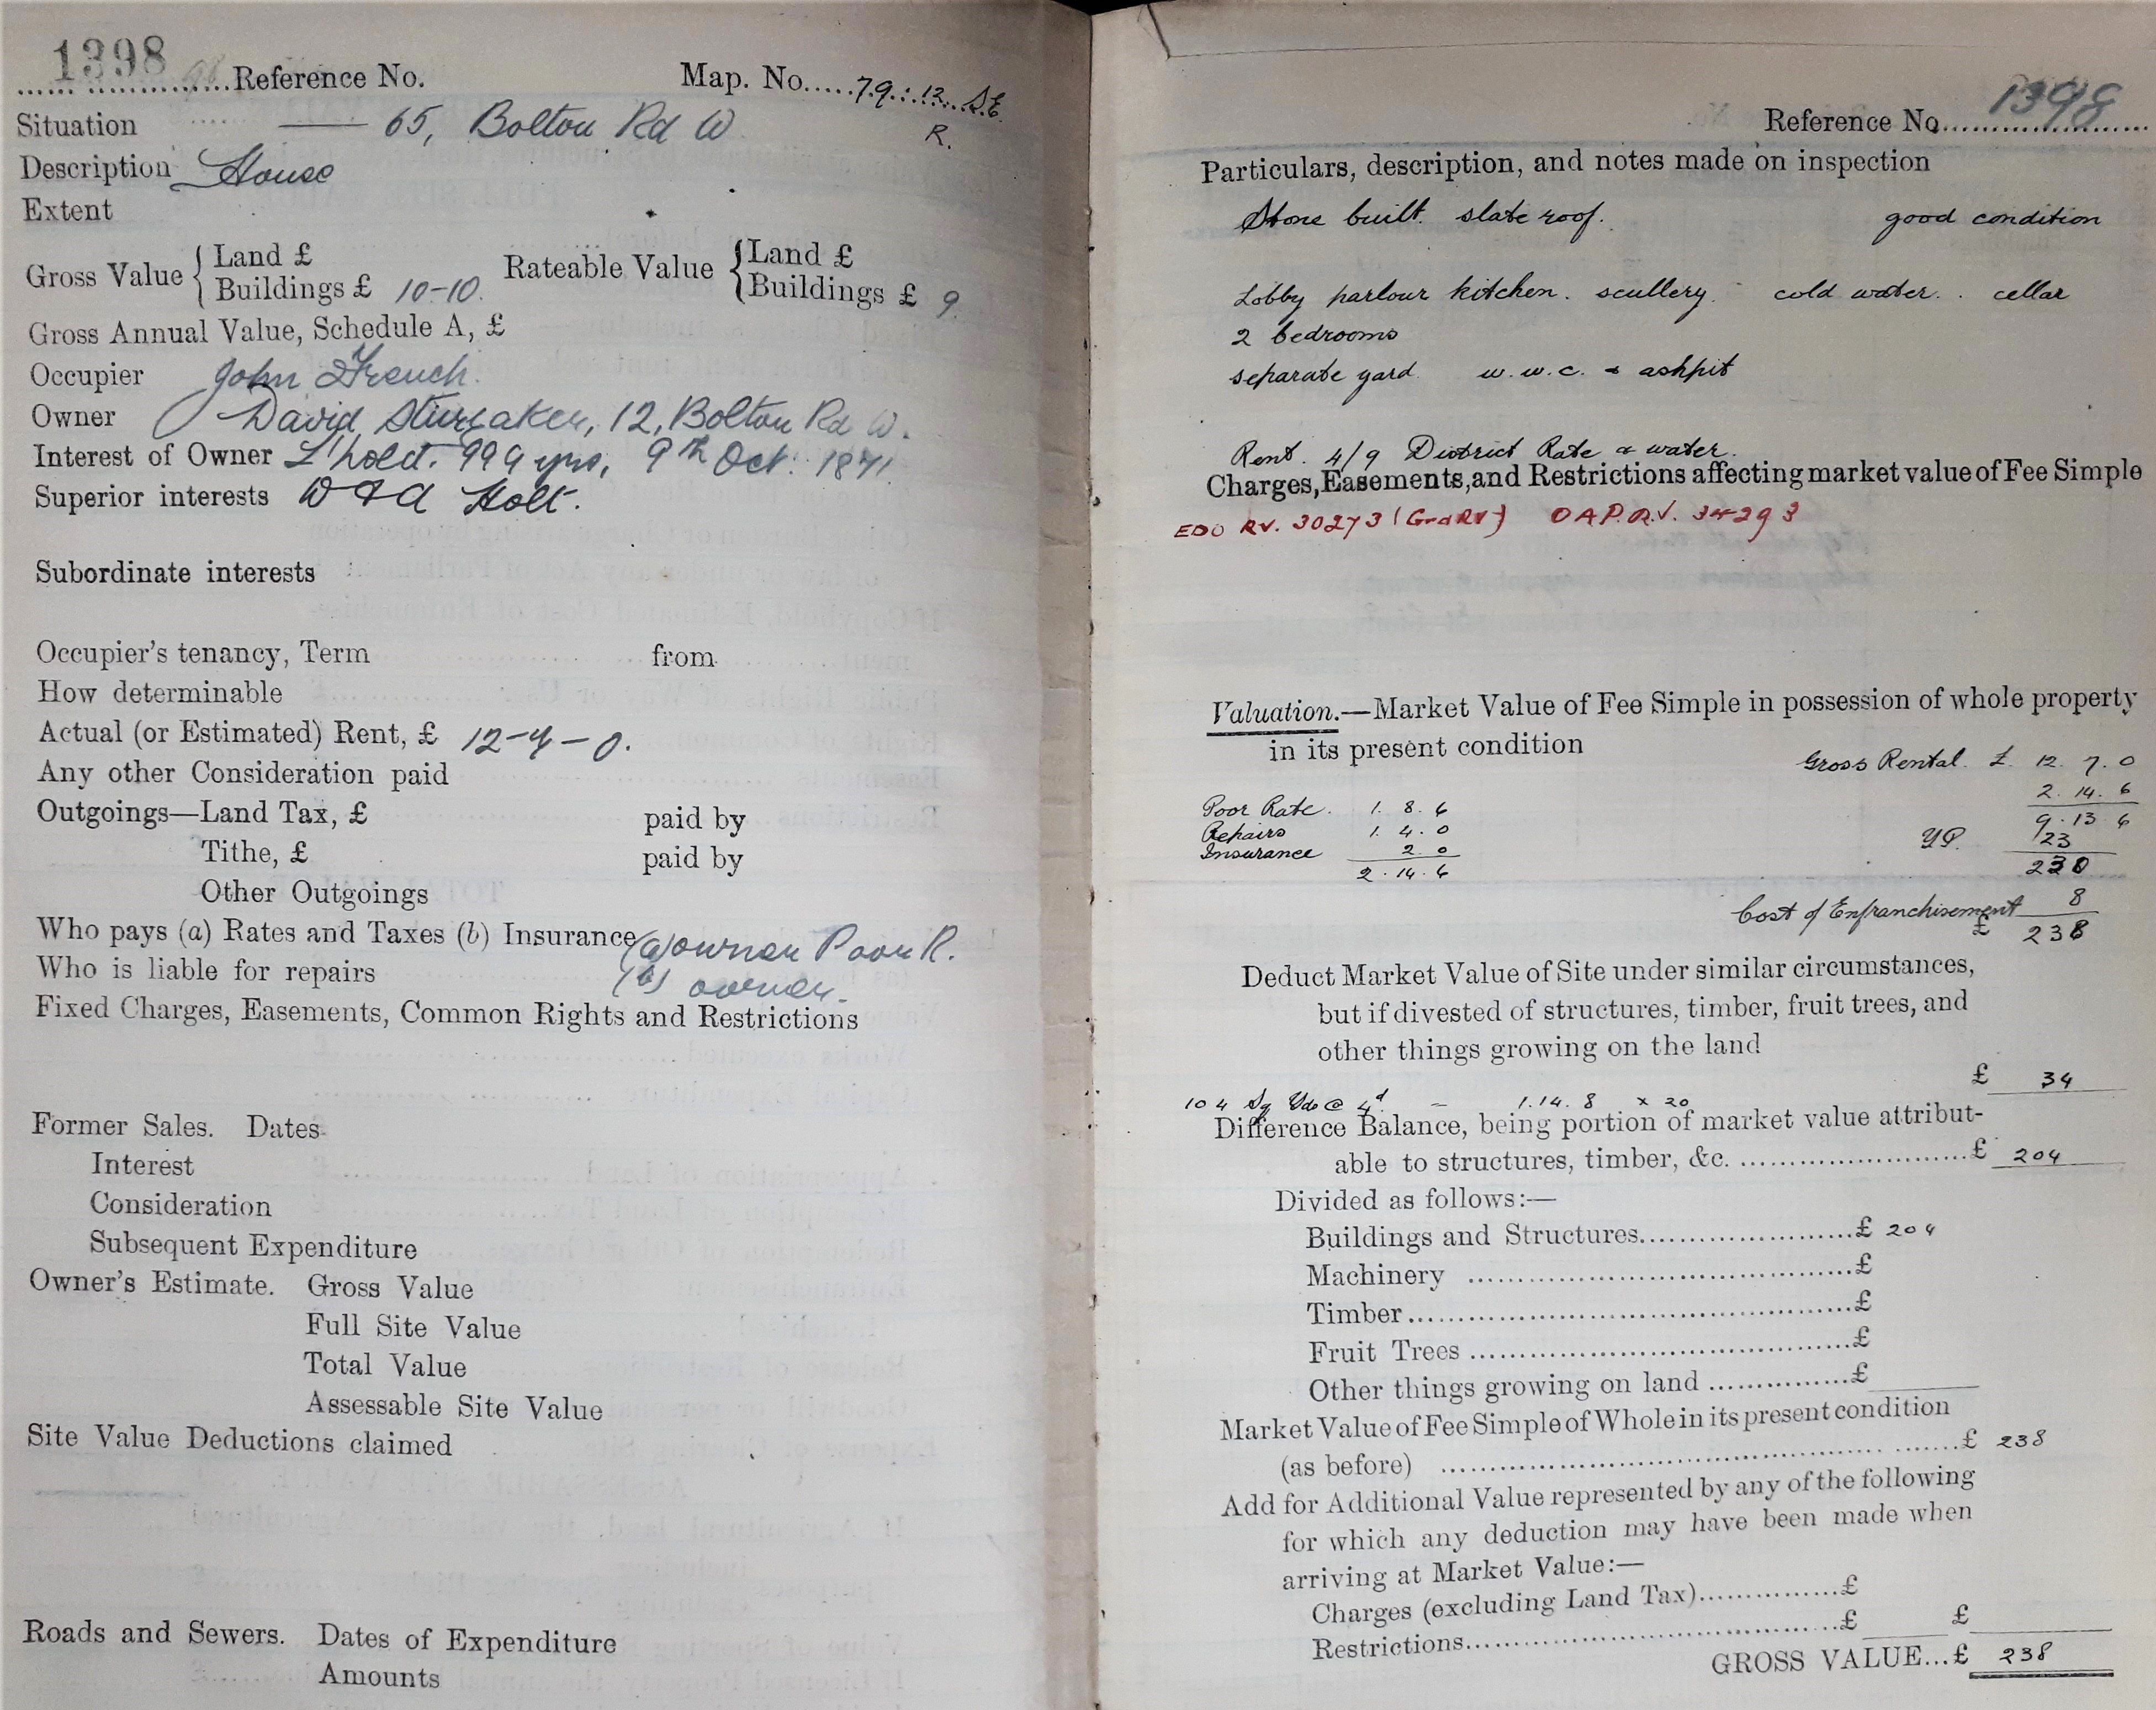 1398 Reference No. Map. No. 79 : 12 S.E.
R.
Situation 65, Bolton Rd W
Description House
Extent
Gross Value { Land £
Buildings £ 10-10. Rateable Value { Land £
Buildings £ 9.
Gross Annual Value, Schedule A, £
Occupier John French.
Owner David 12, Bolton Rd W.
Interest of Owner L'hold. 999 yrs, 9th Oct. 1871.
Superior interests W & A Holt.
Subordinate interests
Occupier's tenancy, Term from
How determinable
Actual (or Estimated) Rent, £ 12-7-0.
Any other Consideration paid
Outgoings—Land Tax, £ paid by
Tithe, £ paid by
Other Outgoings
Who pays (a) Rates and Taxes (b) Insurance (a) owner Poor R.
Who is liable for repairs (b) owner.
Fixed Charges, Easements, Common Rights and Restrictions
Former Sales. Dates
Interest
Consideration
Subsequent Expenditure
Owner's Estimate. Gross Value
Full Site Value
Total Value
Assessable Site Value
Site Value Deductions claimed
Roads and Sewers. Dates of Expenditure
Amounts
Reference No. 1398
Particulars, description, and notes made on inspection
Stone built. slate roof. good condition
Lobby parlour kitchen. scullery. cold water. cellar
2 bedrooms
separate yard w.w.c. & ashpit
Rent. 4/9 District Rate & water.
Charges, Easements, and Restrictions affecting market value of Fee Simple
EDO RV. 30273 (Grd RV) OAP.R.V. 34293
Valuation.—Market Value of Fee Simple in possession of whole property
in its present condition
Gross Rental. £ 12. 7. 0
Poor Rate. 1. 8. 6 2. 14. 6
Repairs 1. 4. 0 9. 13 6
Insurance 2. 0 YP. 23
2. 14. 6 230
Cost of Enfranchisement 8
£ 238
Deduct Market Value of Site under similar circumstances,
but if divested of structures, timber, fruit trees, and
other things growing on the land
£ 34
104 Sq Yds @ 4d – 1. 14. 8 x 20
Difference Balance, being portion of market value attribut-
able to structures, timber, &c. £ 204
Divided as follows:—
Buildings and Structures £ 204
Machinery £
Timber £
Fruit Trees £
Other things growing on land £
Market Value of Fee Simple of Whole in its present condition
(as before) £ 238
Add for Additional Value represented by any of the following
for which any deduction may have been made when
arriving at Market Value:—
Charges (excluding Land Tax) £
Restrictions £ £
GROSS VALUE...£ 238